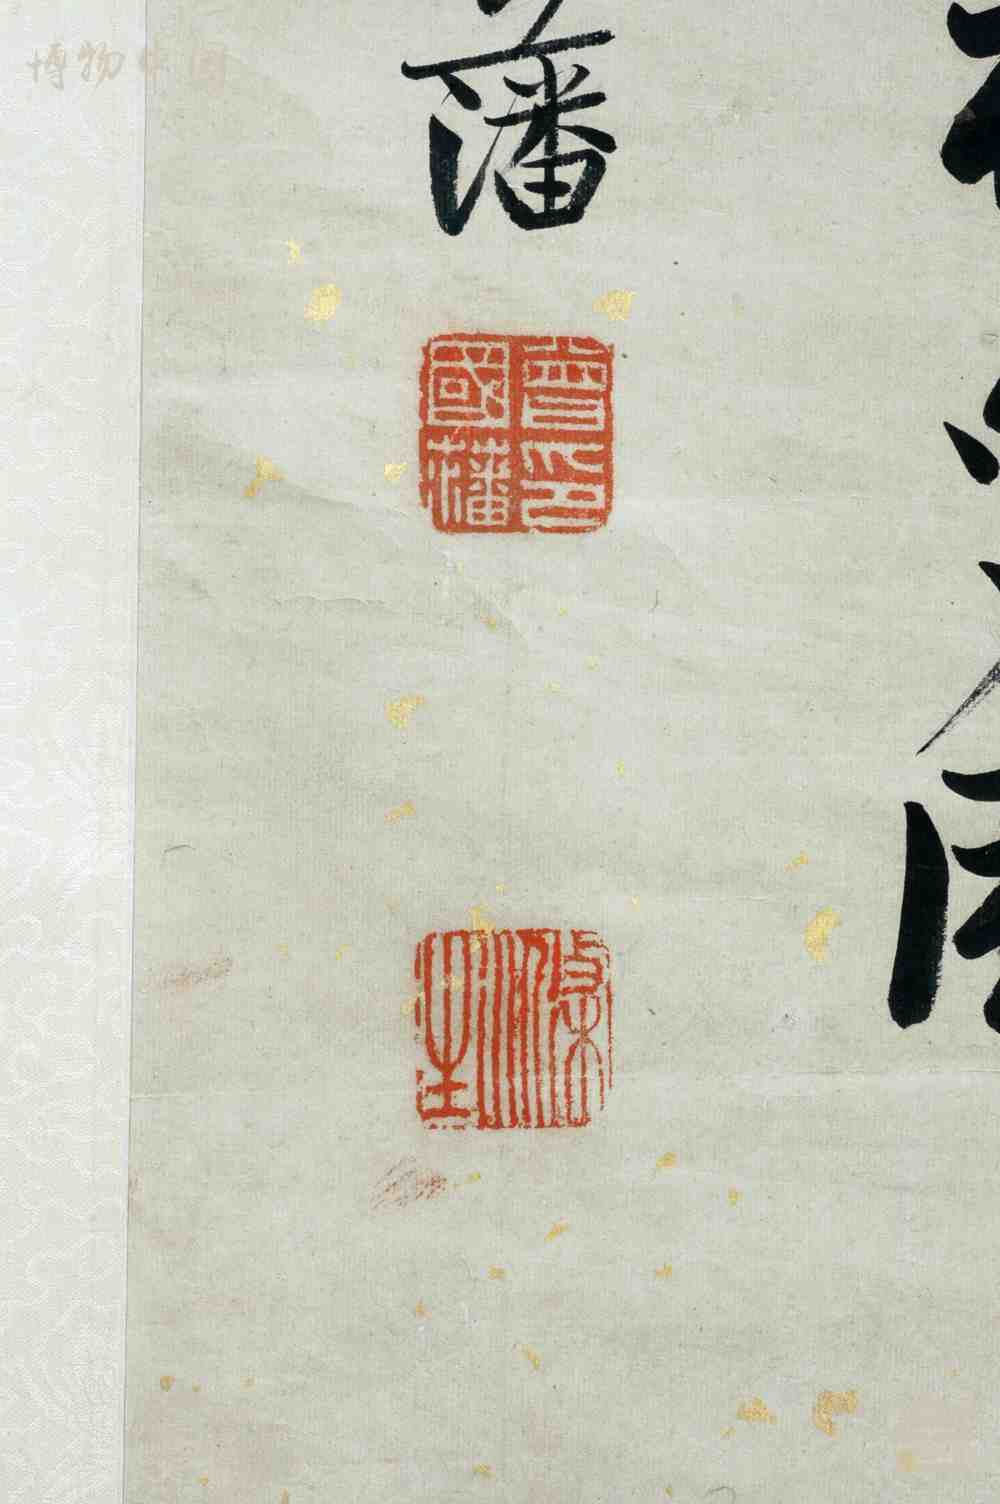 博物中国
藩
曾印國藩
滌生